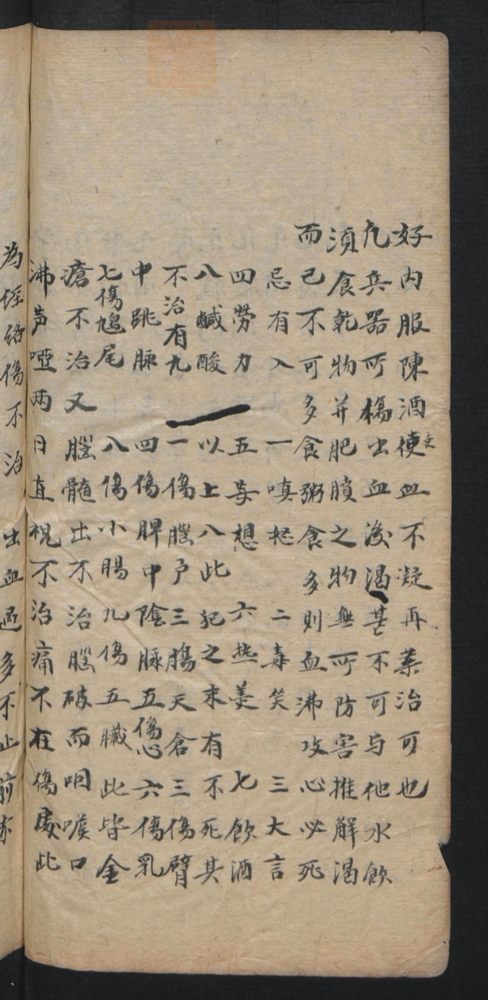 好內服陳酒使血不凝再藥治可也
凡兵器所傷出血後渴甚不可与他水飲
須食乾物并肥膩之物無所防害推解渴
而已不可多食粥食多則血沸攻心必死
忌有入 一嗔怒 二毒笑 三大言
四勞力 五妄想 六热羹 七飲酒
八鹹酸 以上八此犯之末有不死其
不治有九 一傷腦户三傷天倉三傷臂
中跳脉 四傷脾中隂脉五傷心六傷乳
七傷鳩尾 八傷小腸九傷五臟此皆金
瘡不治又 腦髓出不治腦破而咽喉口
沸声啞两日直視不治痛不在傷處此
為經絡傷不治 出血過多不止前赤